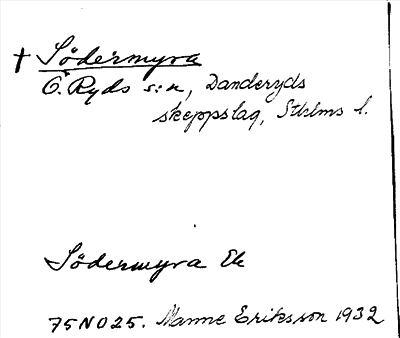 † Södermyra
Ö. Ryds s:n, Danderyds
skeppslag, Sthlms l.
Södermyra Ek
75NO25. Manne Eriksson 1932